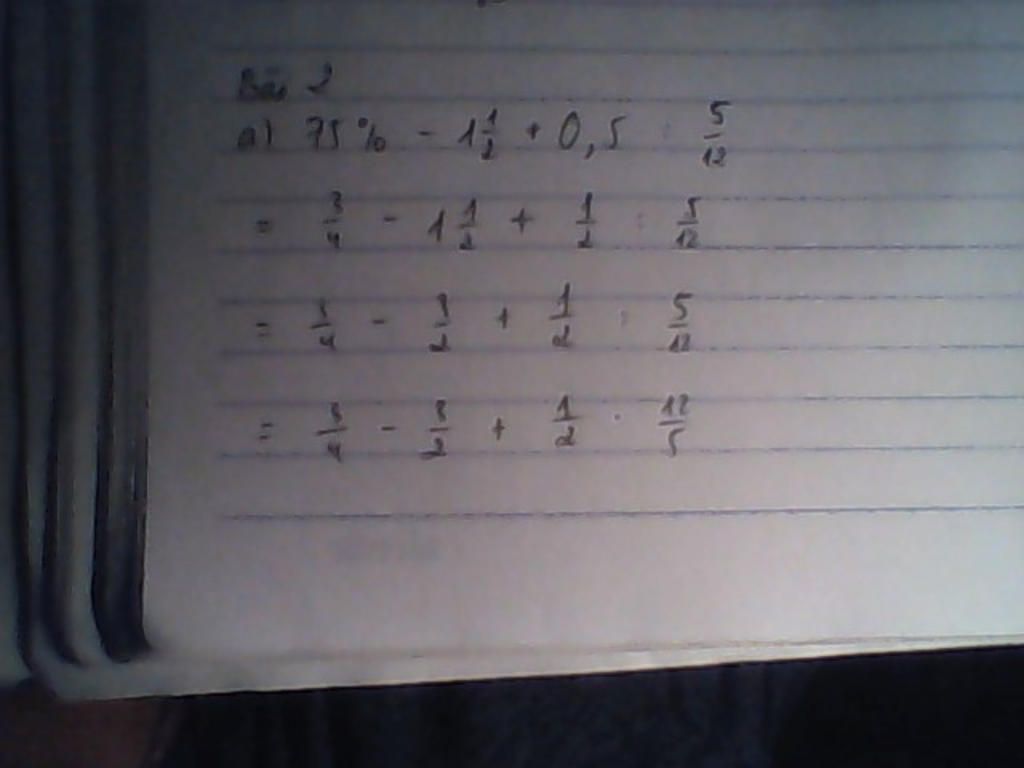 Bài 2
a) 75% - 1 1/2 + 0,5 : 5/12
= 3/4 - 1 1/2 + 1/2 : 5/12
= 3/4 - 3/2 + 1/2 : 5/12
= 3/4 - 3/2 + 1/2 . 12/5